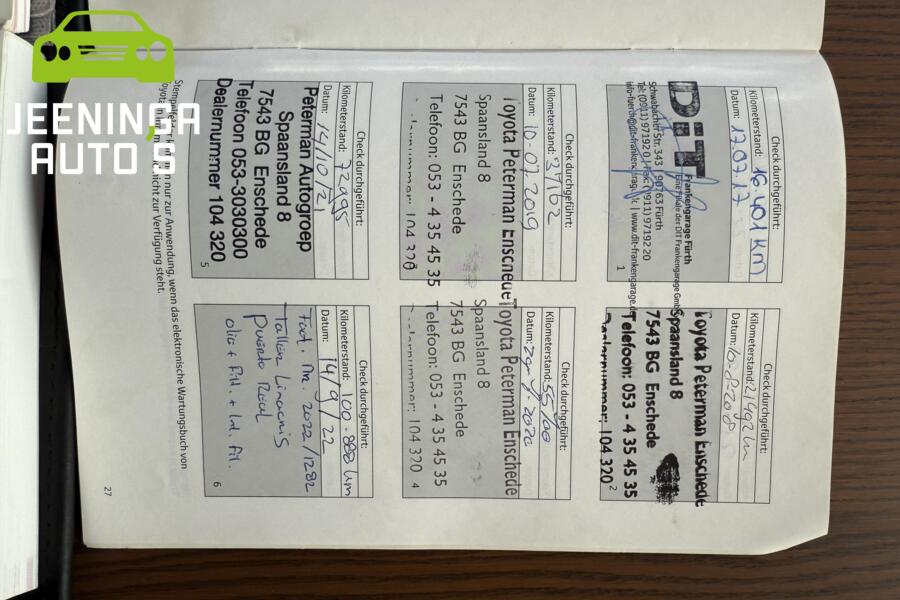 JEENINGA
AUTO
Check durchgeführt:
Kilometerstand: 16.401 KM
Datum: 17.07.17
DiT
Frankengarage Fürth
Eine Filiale der DIT Frankengarage GmbH
Schwabacher Str. 343 | 90763 Fürth
Tel: (0911) 97192 0 | Fax: (0911) 97192 20
info-fuerth@dit-frankengarage.de | www.dit-frankengarage.de
1
Check durchgeführt:
Kilometerstand:
Datum: 10-8-2018
Toyota Peterman Enschede
Spaansland 8
7543 BG Enschede
Telefoon: 053 - 4 35 45 35
Dealernummer: 104 320
2
Check durchgeführt:
Kilometerstand: 37162
Datum: 10-07-2019
Toyota Peterman Enschede
Spaansland 8
7543 BG Enschede
Telefoon: 053 - 4 35 45 35
Dealernummer: 104 320
Check durchgeführt:
Kilometerstand: 55100
Datum:
Toyota Peterman Enschede
Spaansland 8
7543 BG Enschede
Telefoon: 053 - 4 35 45 35
Dealernummer: 104 320
4
Check durchgeführt:
Kilometerstand: 72995
Datum: 14/10/21
Peterman Autogroep
Spaansland 8
7543 BG Enschede
Telefoon 053-3030300
Dealernummer 104 320
5
Check durchgeführt:
Kilometerstand: 100.888 km
Datum: 14/9/22
Fact. Nr. 2022/1282
Taller Limacnis
Puerto Real
olie + Fil. + Lnd. Fil.
6
Stempelfelder kommen nur zur Anwendung, wenn das elektronische Wartungsbuch von
Toyota nicht zur Verfügung steht.
27